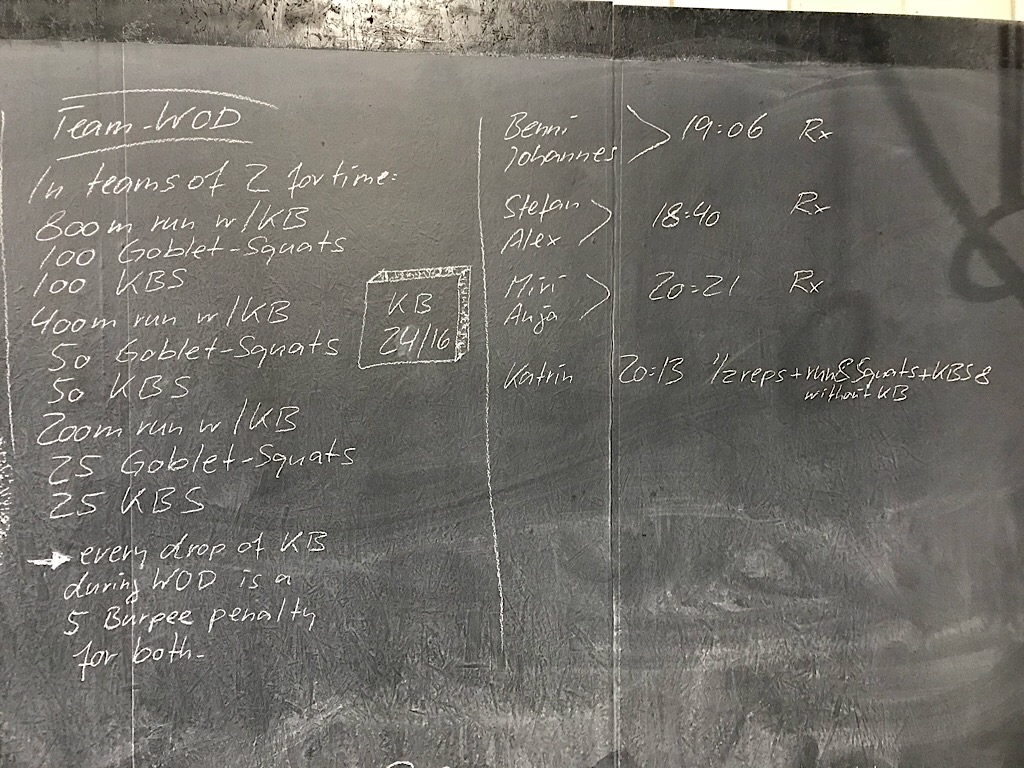 Team-WOD
In teams of 2 for time:
800m run w/KB
100 Goblet-Squats
100 KBS
400m run w/KB
50 Goblet-Squats
50 KBS
200m run w/KB
25 Goblet-Squats
25 KBS
→ every drop of KB
during WOD is a
5 Burpee penalty
for both-
KB
24/16
Benni
Johannes
19:06 Rx
Stefan
Alex
18:40 Rx
Miri
Anja
20:21 Rx
Katrin 20:13 1/2 reps + run & Squats + KBS 8
without KB